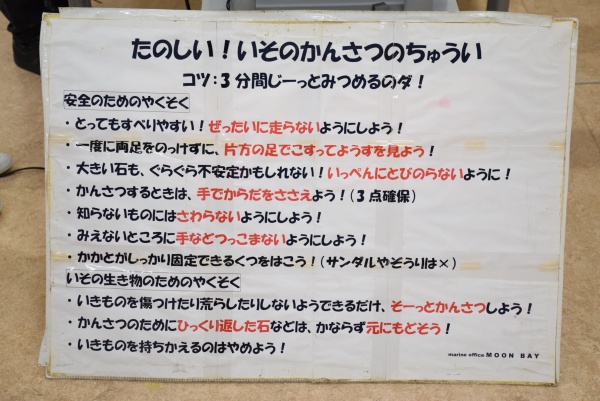 たのしい!いそのかんさつのちゅうい
コツ:3分間じーっとみつめるのダ!
安全のためのやくそく
・とってもすべりやすい!ぜったいに走らないようにしよう!
・一度に両足をのっけずに、片方の足でこすってようすを見よう!
・大きい石も、ぐらぐら不安定かもしれない!いっぺんにとびのらないように!
・かんさつするときは、手でからだをささえよう!(3点確保)
・知らないものにはさわらないようにしよう!
・みえないところに手などつっこまないようにしよう!
・かかとがしっかり固定できるくつをはこう!(サンダルやぞうりは×)
いその生き物のためのやくそく
・いきものを傷つけたり荒らしたりしないようできるだけ、そーっとかんさつしよう!
・かんさつのためにひっくり返した石などは、かならず元にもどそう!
・いきものを持ちかえるのはやめよう!
marine office MOON BAY